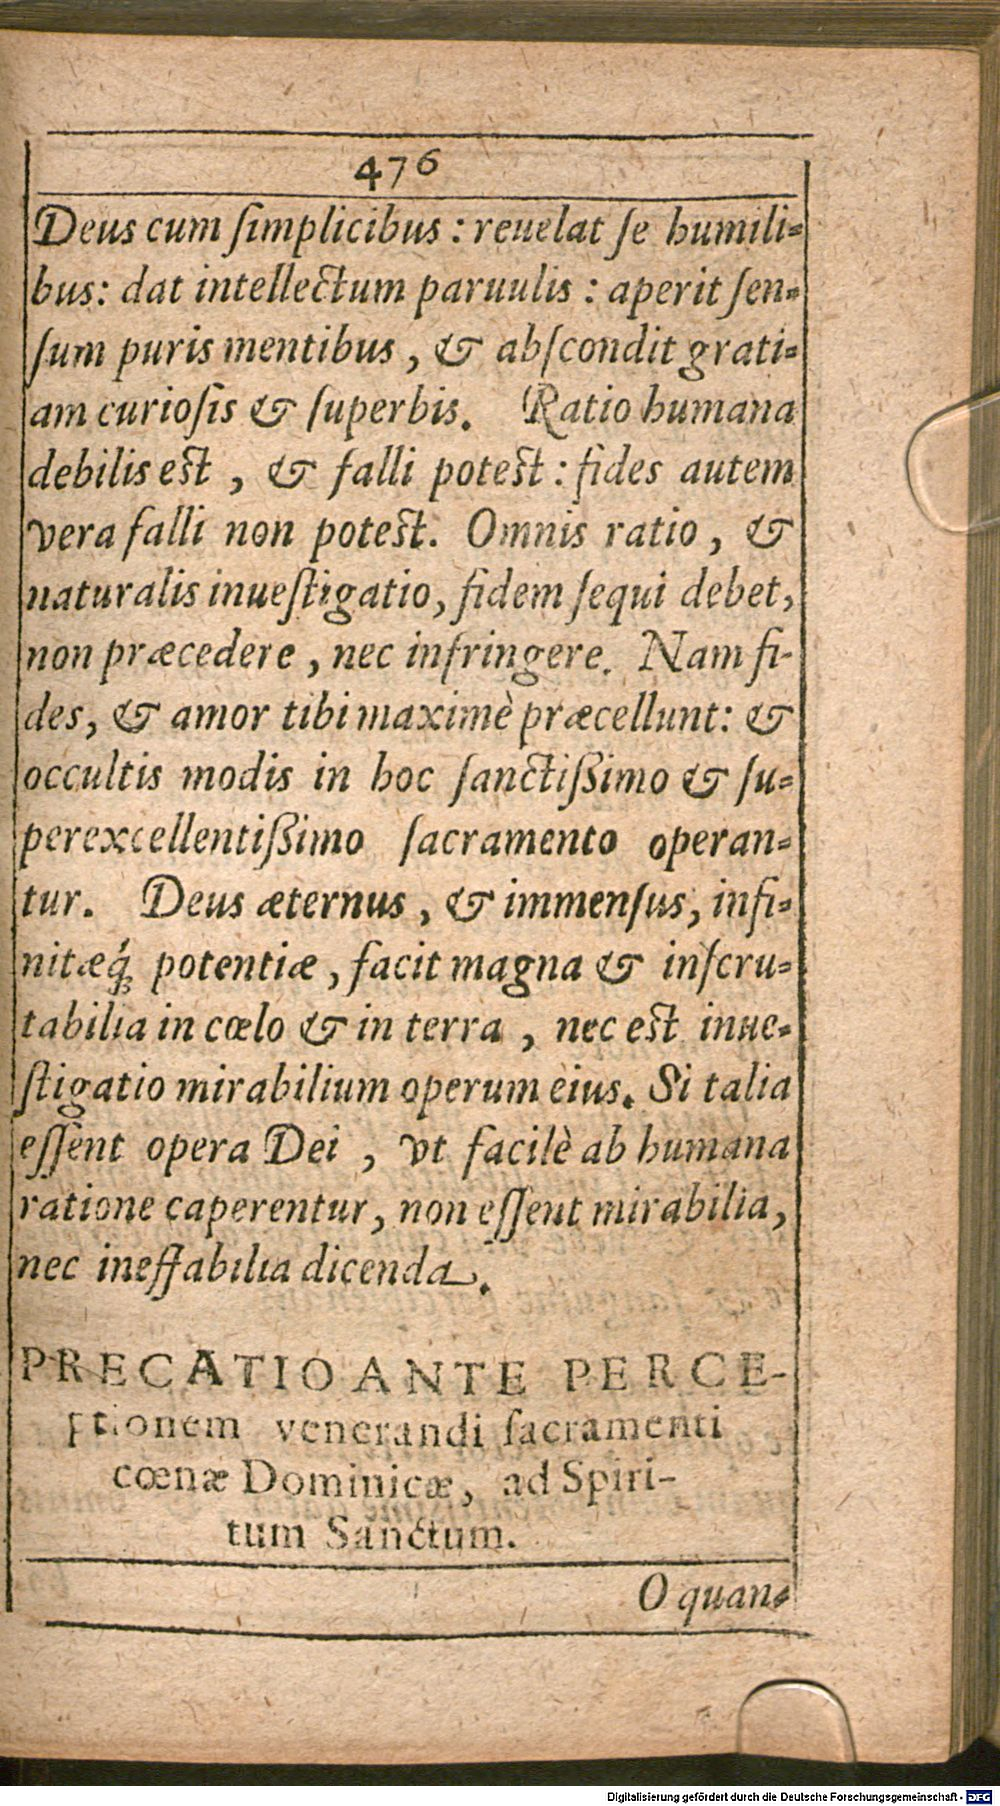 476
Deus cum ſimplicibus : reuelat ſe humili-
bus: dat intellectum paruulis : aperit ſen-
ſum puris mentibus, & abſcondit grati-
am curioſis & ſuperbis. Ratio humana
debilis est, & falli potest : fides autem
vera falli non potest. Omnis ratio, &
naturalis inueſtigatio, fidem ſequi debet,
non præcedere, nec infringere. Nam fi-
des, & amor tibi maximè præcellunt: &
occultis modis in hoc ſanctiſſimo & ſu-
perexcellentiſſimo ſacramento operan-
tur. Deus æternus, & immenſus, infi-
nitæq́; potentiæ, facit magna & inſcru-
tabilia in cœlo & in terra, nec est inue-
ſtigatio mirabilium operum eius. Si talia
eſſent opera Dei, vt facilè ab humana
ratione caperentur, non eſſent mirabilia,
nec ineffabilia dicenda.
PRECATIO ANTE PERCE-
ptionem venerandi ſacramenti
cœnæ Dominicæ, ad Spiri-
tum Sanctum.
O quan-
Digitalisierung gefördert durch die Deutsche Forschungsgemeinschaft - DFG